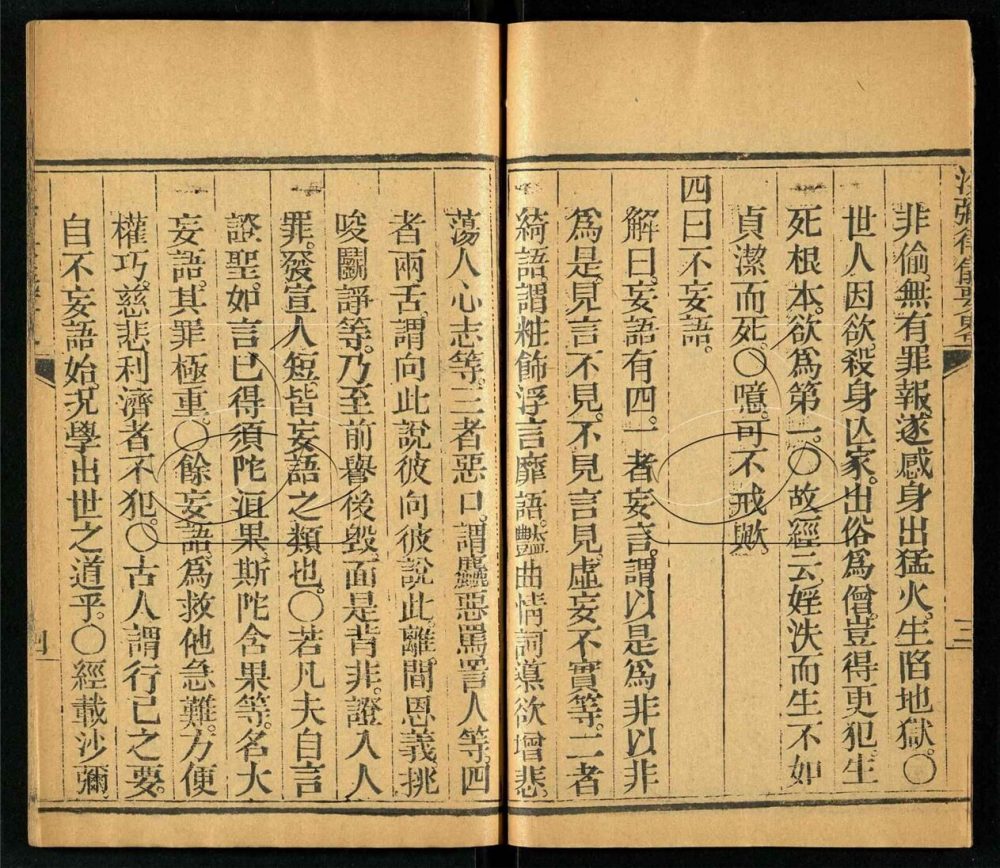 沙彌律儀要畧
三
非偷。無有罪報。遂感身出猛火。生陷地獄。〇
世人因欲。殺身亾家。出俗爲僧。豈得更犯。生
死根本。欲爲第一。〇故經云。婬泆而生。不如
貞潔而死。〇噫。可不戒歟。
四曰不妄語。
解曰。妄語有四。一者妄言。謂以是爲非。以非
爲是。見言不見。不見言見。虛妄不實等。二者
綺語。謂粧飾浮言靡語。豔曲情詞。導欲增悲。
蕩人心志等。三者惡口。謂麤惡罵詈人等。四
者兩舌。謂向此說彼。向彼說此。離間恩義。挑
唆鬬諍等。乃至前譽後毀。面是背非。證入人
罪。發宣人短。皆妄語之類也。〇若凡夫自言
證聖。如言已得須陀洹果。斯陀含果等。名大
妄語。其罪極重。〇餘妄語。爲救他急難。方便
權巧。慈悲利濟者不犯。〇古人謂行己之要。
自不妄語始。況學出世之道乎。〇經載沙彌。
四